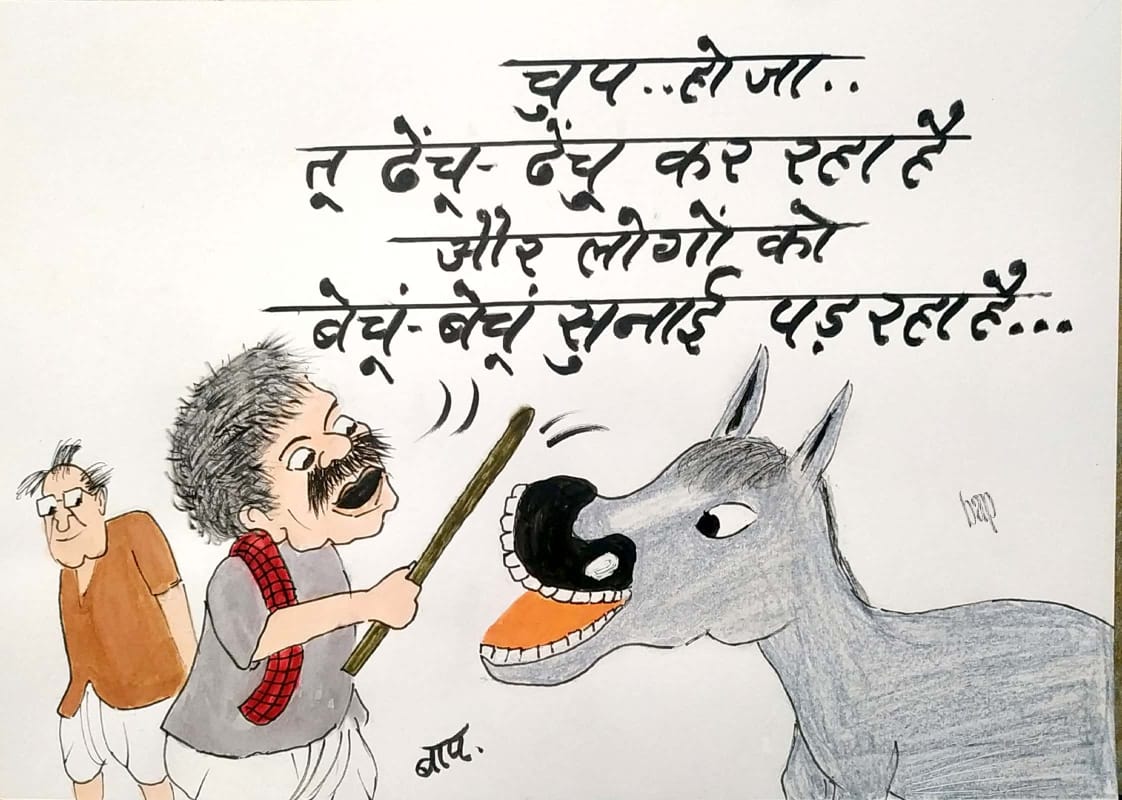 चुप..हो जा..
तू ढेंचू-ढेंचू कर रहा है
और लोगों को
बेचूं-बेचूं सुनाई पड़ रहा है...
bap
बाप.